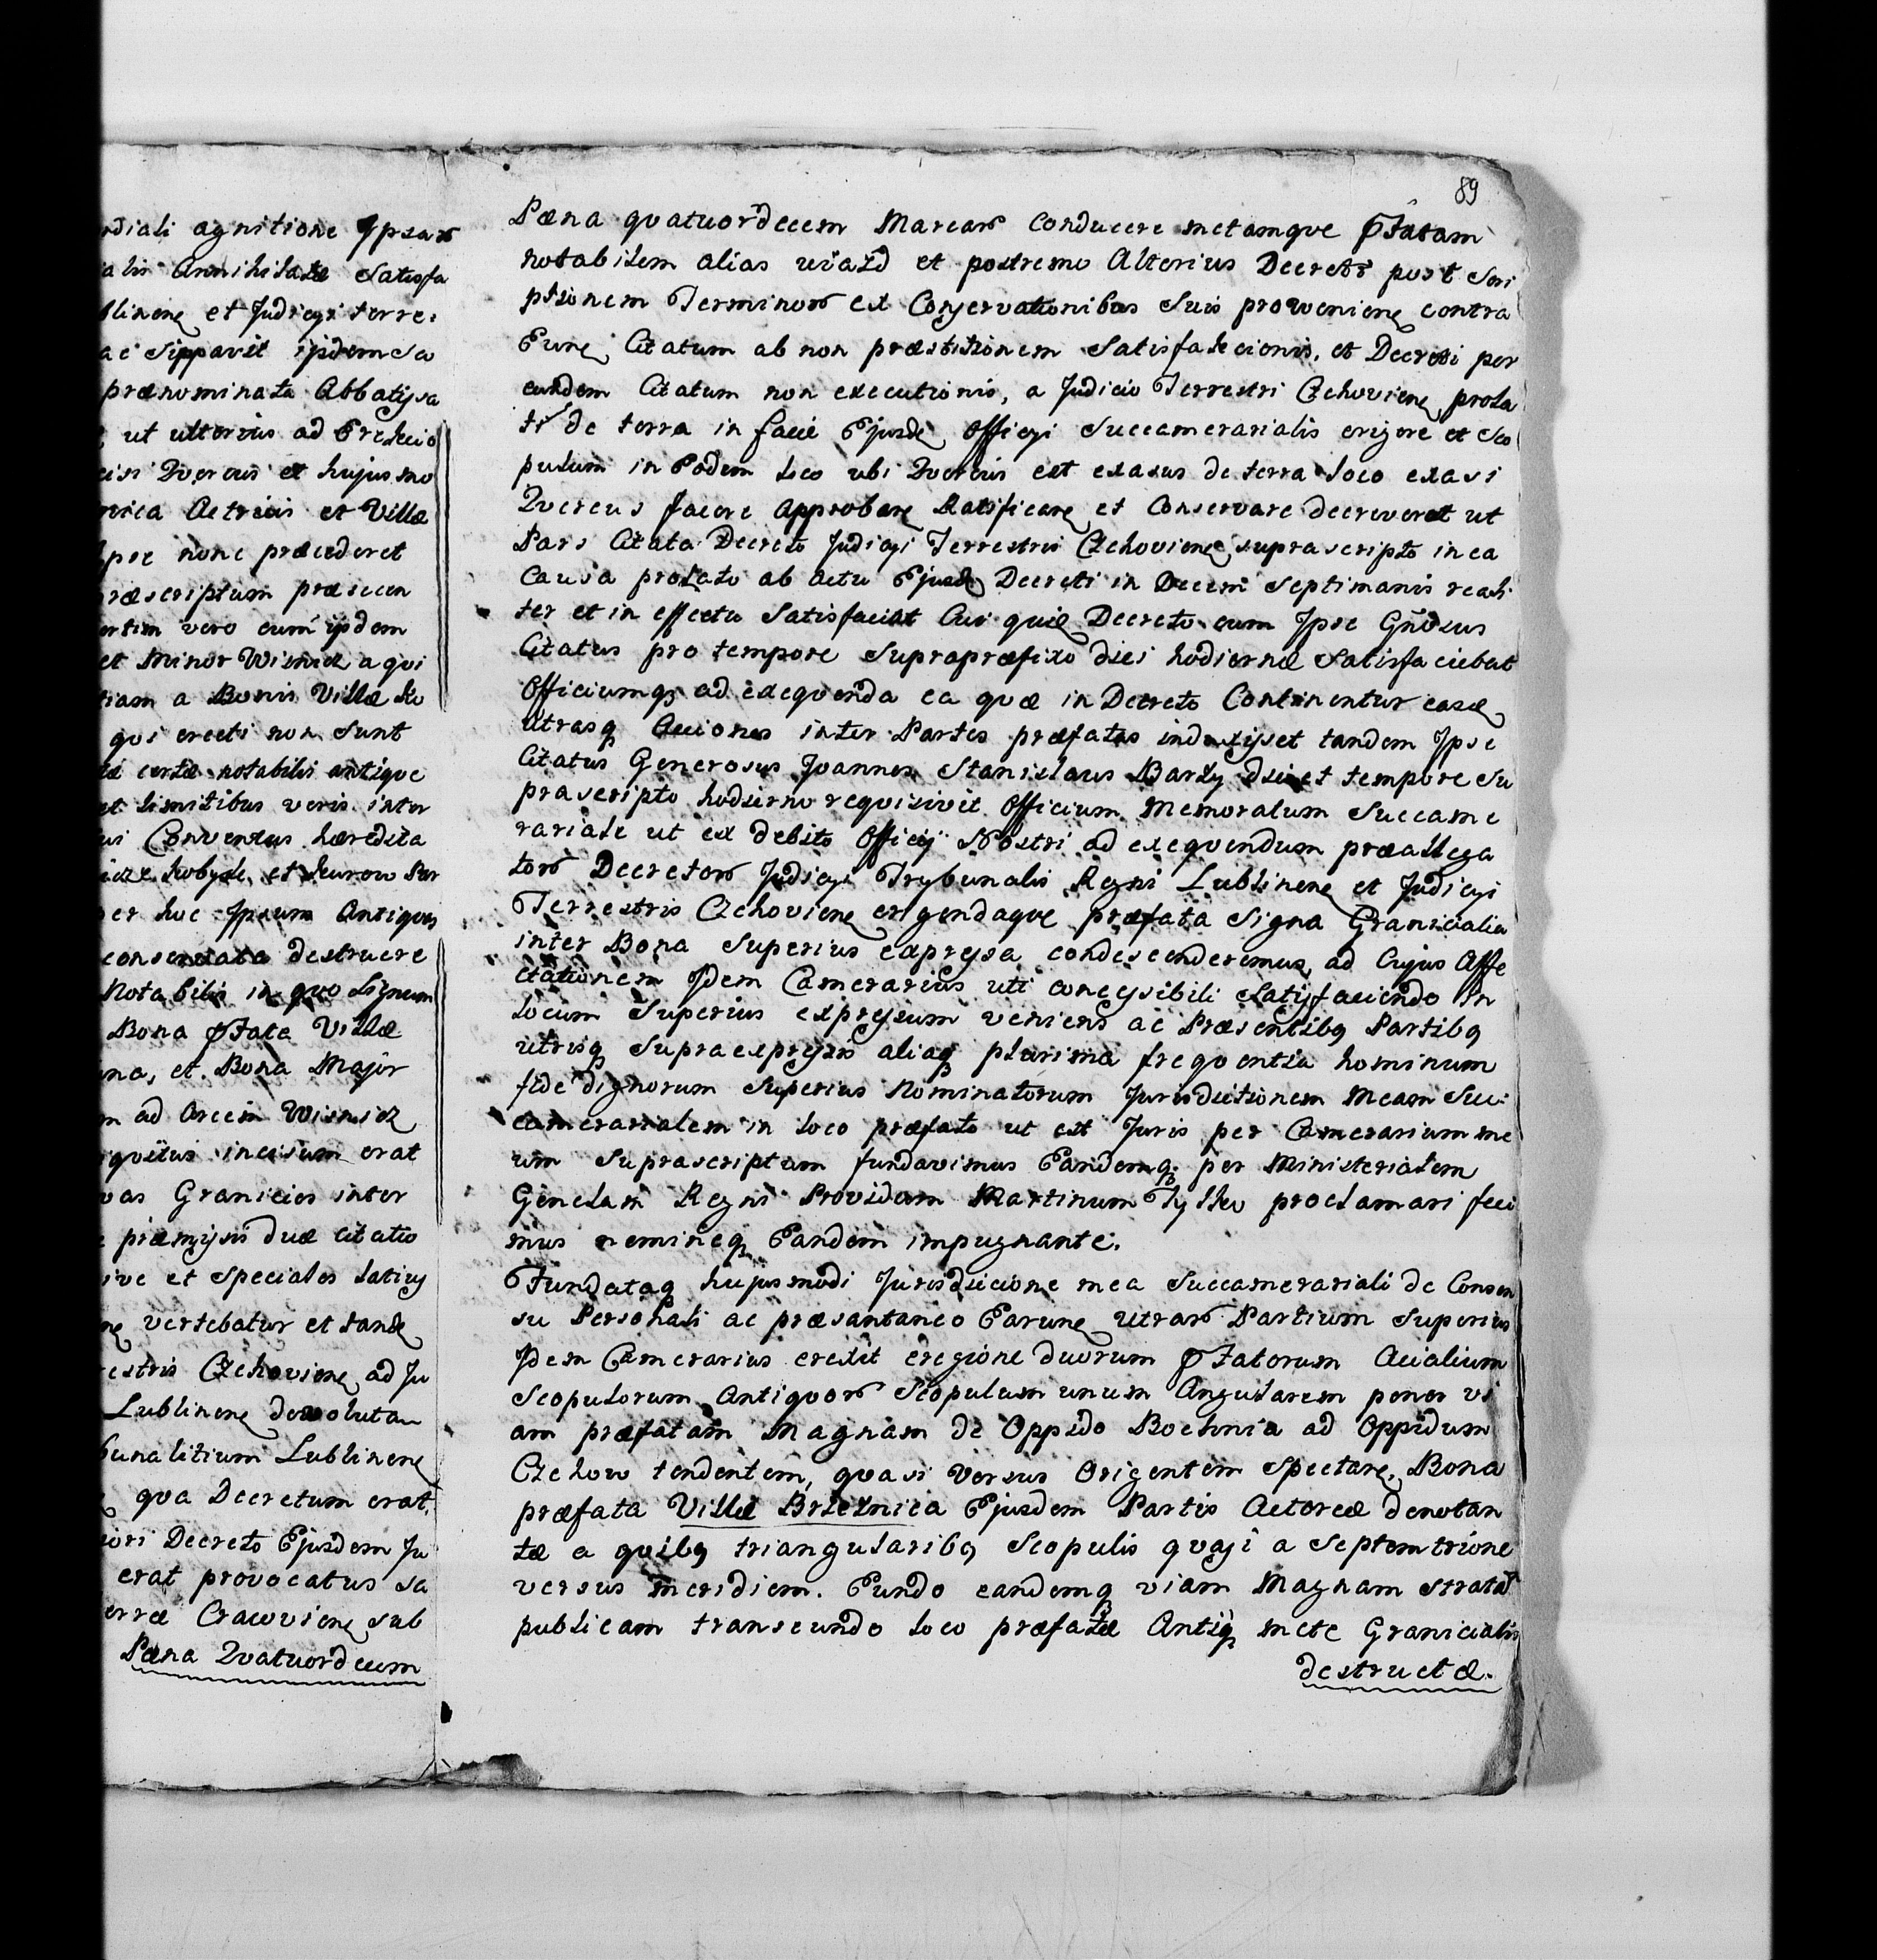 rdiali agnitione Ipsar
alis Annihilatæ Satisfa
blinen et Judicyi terre,
ac Sippavit ipsdem Sa
prænominata Abbatysa
ut ulterius ad Erectio
cisi Quercus et hujusmo
nica Actricis et Villæ
Ipse nonc præcederet
ræscriptum præsecen
ertim vero cum ipsdem
et Minor Wisnicz a qui
tiam a Bonis Villæ Ko
qui erecti non sunt
tæ certæ notabilis antique
et limitibus veris inter
ui Conventus hæredita
et Kurow Par
er huc Ipsum Antiquas
consecrata destruere
Notabilis in quo Lignum
Bona Pfata Villæ
na, et Bona Major
m ad Arcem Wisnicz
iquitus incisum erat
vas Granicies inter
præmysis duæ Citatio
ive et Speciales Latius
vertebatur et tande
restris Czchoviene ad Ju
Lublinene devolutam
bunalitium Lublinene
qua Decretum erat
iori Decreto Ejusdem Ju
erat provocatus Sa
erræ Cracoviene sub
Pæna Quatuordecim
89
Pæna quatuordecem Marcar conducere metamque Pfatam
notabilem alias uiazd et postremo Alterius Decreti post Scri
ptionem Terminor ex Conservationibus Suis provenien contra
Eunc Citatum ab non præstitionem Satisfactcionis, et Decreti per
eundem Citatum non executionis, a Judicio Terrestri Czchoviene prola
ti de terra in facie Ejusde Officyi Succamerarialis erigere et Sco
pulum in Eodem loco ubi Quercus est exasus de terra loco exasi
Quercus facere Approbare Ratificare et Conservare decreverat ut
Pars Citata Decreto Judicyi Terrestris Czchoviene suprascripto in ea
Causa prolato ab Actu Ejusd Decreti in Decem Septimanis reali
ter et in effectu Satisfaciat Cui quid Decreto cum Ipse Gnosus
Citatus pro tempore Suprapræfixo diei hodiernæ Satisfaciebat
Officiumq ad exequenda ea quæ in Decreto Continentur easd
utrasq Acciones inter Partes præfatas induxyset tandem Ipse
Citatus Generosus Joannes Stanislaus Barzy die et tempore Su
prascripto hodierno requisivit Officium Memoratum Succame
rariale ut ex debito Officij Nostri ad exequendum præallega
tor Decretor Judicyi Trybunalis Regni Lublinene et Judicyi
Terrestris Czchoviene erigendaque præfata Signa Granicialia
inter Bona Superius expressa condescenderemus, ad Cujus Affe
ctationem Idem Camerarius uti concesibili Satisfaciendo in
locum Superius expressum veniens ac Præsentibq Partibq
utrisq Supraexpressis aliaq plurima frequentia hominum
fide dignorum Superius Nominatorum Jurisdictionem Meam Suc
camerarialem in loco præfato ut est Juris per Camerarium me
um Suprascriptum fundavimus Eandemq per Ministerialem
Gënelam Regni Providum Martinum Tylko proclamari feci
mus nemineq Eandem impugnante.
Fundataq hujusmodi Jurisdicione mea Succamerariali de Consen
su Personali ac præsantaneo Earunc Utrar Partium Superius
Idem Camerarius erexit eregione duorum Pfatorum Acialium
Scopulorum Antiquor Scopulum unum Angularem penes vi
am præfatam Magnam de Oppido Bochnia ad Oppidum
Czchow tendentem, quasi versus Origentem Spectare, Bona
præfata Villæ Brzeznica Ejusdem Partis Actoreæ denotan
tæ a quibq triangularibq Scopulis quasi a Septemtrione
versus meridiem. Eundo eandemq viam Magnam strata
publicam transeundo loco præfatæ Antiq mete Granicialis
destructæ.